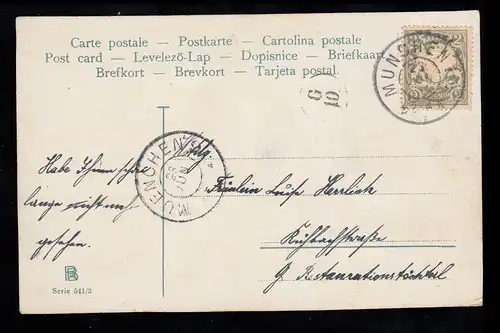 Carte postale – Postkarte – Cartolina postale
Post card – Levelező-Lap – Dopisnice – Briefkaart
Brefkort – Brevkort – Tarjeta postal.
MÜNCHEN
G
10
MUENCHEN
23 JUN
Habe Ihnen schon
lange nicht
gesehen.
Fräulein Luise Herrlich
Kühbachstraße
Restaurationstöchterl
B
Serie 541/3